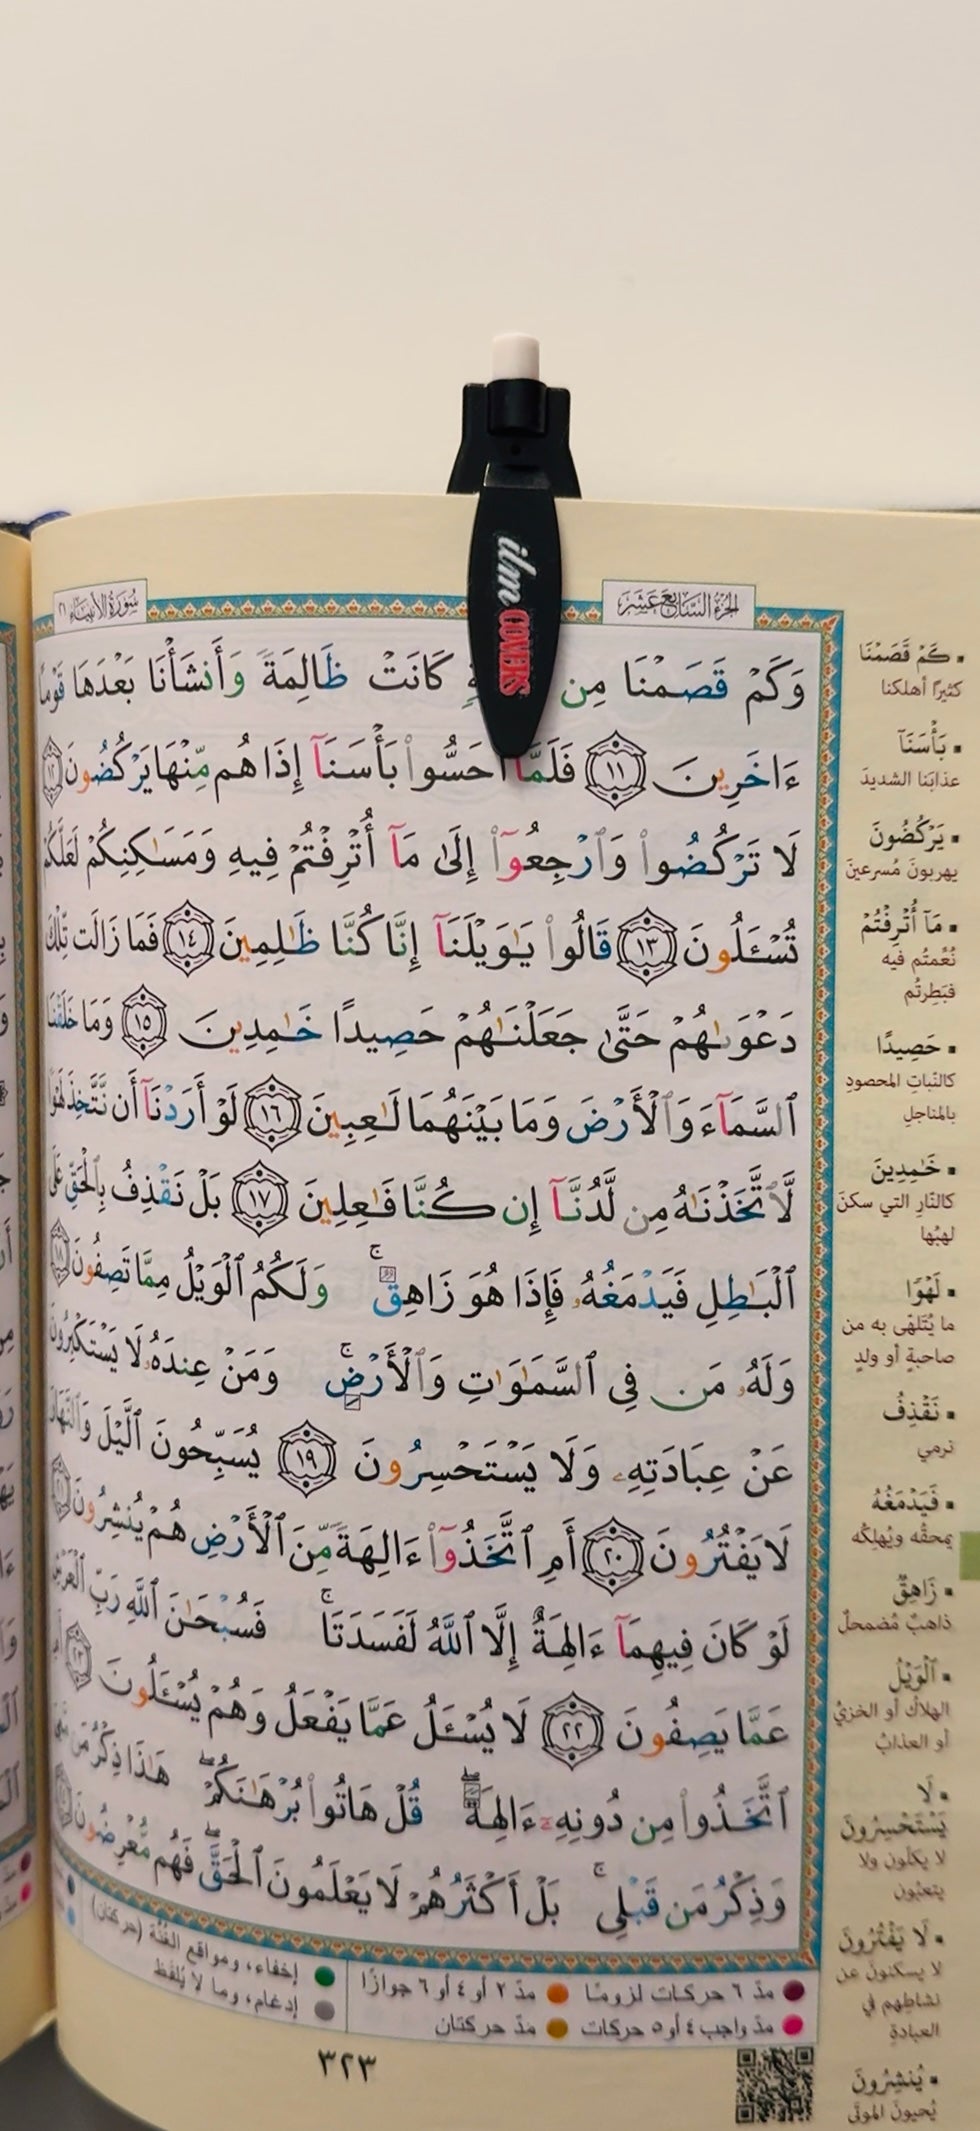 سُورَةُ الأنبيَاء ٢١
الجزءُ السَّابِعَ عَشَرَ
ilm COVERS
وَكَمۡ قَصَمۡنَا مِن كَانَتۡ ظَالِمَةٗ وَأَنشَأۡنَا بَعۡدَهَا قَوۡمًا
ءَاخَرِينَ ١١ فَلَمَّآ أَحَسُّواْ بَأۡسَنَآ إِذَا هُم مِّنۡهَا يَرۡكُضُونَ ١٢
لَا تَرۡكُضُواْ وَٱرۡجِعُوٓاْ إِلَىٰ مَآ أُتۡرِفۡتُمۡ فِيهِ وَمَسَٰكِنِكُمۡ لَعَلَّكُمۡ
تُسۡـَٔلُونَ ١٣ قَالُواْ يَٰوَيۡلَنَآ إِنَّا كُنَّا ظَٰلِمِينَ ١٤ فَمَا زَالَت تِّلۡكَ
دَعۡوَىٰهُمۡ حَتَّىٰ جَعَلۡنَٰهُمۡ حَصِيدًا خَٰمِدِينَ ١٥ وَمَا خَلَقۡنَا
ٱلسَّمَآءَ وَٱلۡأَرۡضَ وَمَا بَيۡنَهُمَا لَٰعِبِينَ ١٦ لَوۡ أَرَدۡنَآ أَن نَّتَّخِذَ لَهۡوٗا
لَّٱتَّخَذۡنَٰهُ مِن لَّدُنَّآ إِن كُنَّا فَٰعِلِينَ ١٧ بَلۡ نَقۡذِفُ بِٱلۡحَقِّ عَلَى
ٱلۡبَٰطِلِ فَيَدۡمَغُهُۥ فَإِذَا هُوَ زَاهِقٞۚ وَلَكُمُ ٱلۡوَيۡلُ مِمَّا تَصِفُونَ ١٨
وَلَهُۥ مَن فِي ٱلسَّمَٰوَٰتِ وَٱلۡأَرۡضِۚ وَمَنۡ عِندَهُۥ لَا يَسۡتَكۡبِرُونَ
عَنۡ عِبَادَتِهِۦ وَلَا يَسۡتَحۡسِرُونَ ١٩ يُسَبِّحُونَ ٱلَّيۡلَ وَٱلنَّهَارَ
لَا يَفۡتُرُونَ ٢٠ أَمِ ٱتَّخَذُوٓاْ ءَالِهَةٗ مِّنَ ٱلۡأَرۡضِ هُمۡ يُنشِرُونَ ٢١
لَوۡ كَانَ فِيهِمَآ ءَالِهَةٌ إِلَّا ٱللَّهُ لَفَسَدَتَاۚ فَسُبۡحَٰنَ ٱللَّهِ رَبِّ ٱلۡعَرۡشِ
عَمَّا يَصِفُونَ ٢٢ لَا يُسۡـَٔلُ عَمَّا يَفۡعَلُ وَهُمۡ يُسۡـَٔلُونَ ٢٣
ٱتَّخَذُواْ مِن دُونِهِۦٓ ءَالِهَةٗۖ قُلۡ هَاتُواْ بُرۡهَٰنَكُمۡۖ هَٰذَا ذِكۡرُ مَن
وَذِكۡرُ مَن قَبۡلِيۚ بَلۡ أَكۡثَرُهُمۡ لَا يَعۡلَمُونَ ٱلۡحَقَّۖ فَهُم مُّعۡرِضُونَ
كَمۡ قَصَمۡنَا
كثيرًا أهلكنا
بَأۡسَنَآ
عذابَنا الشديدَ
يَرۡكُضُونَ
يهربونَ مُسرعينَ
مَآ أُتۡرِفۡتُمۡ
نُعِّمتُم فيه
فبَطِرتُم
حَصِيدًا
كالنّباتِ المحصودِ
بالمناجلِ
خَٰمِدِينَ
كالنّارِ التي سكنَ
لهبُها
لَهۡوٗا
ما يُتَلهّى به من
صاحبةٍ أو ولدٍ
نَقۡذِفُ
نرمي
فَيَدۡمَغُهُۥ
يمحقُه ويُهلِكُه
زَاهِقٞ
ذاهبٌ مُضمحلٌ
ٱلۡوَيۡلُ
الهلاكُ أو الخزيُ
أو العذابُ
لَا
يَسۡتَحۡسِرُونَ
لا يكلّون ولا
يتعبُون
لَا يَفۡتُرُونَ
لا يسكنونَ عن
نشاطِهم في
العبادةِ
يُنشِرُونَ
يُحيونَ الموتَى
مدّ ٦ حركات لزومًا مدّ ٢ أو ٤ أو ٦ جوازًا إخفاء، ومواقع الغُنَّة (حركتان)
مدّ واجب ٤ أو ٥ حركات مدّ حركتان إدغام، وما لا يُلفَظ
٣٢٣